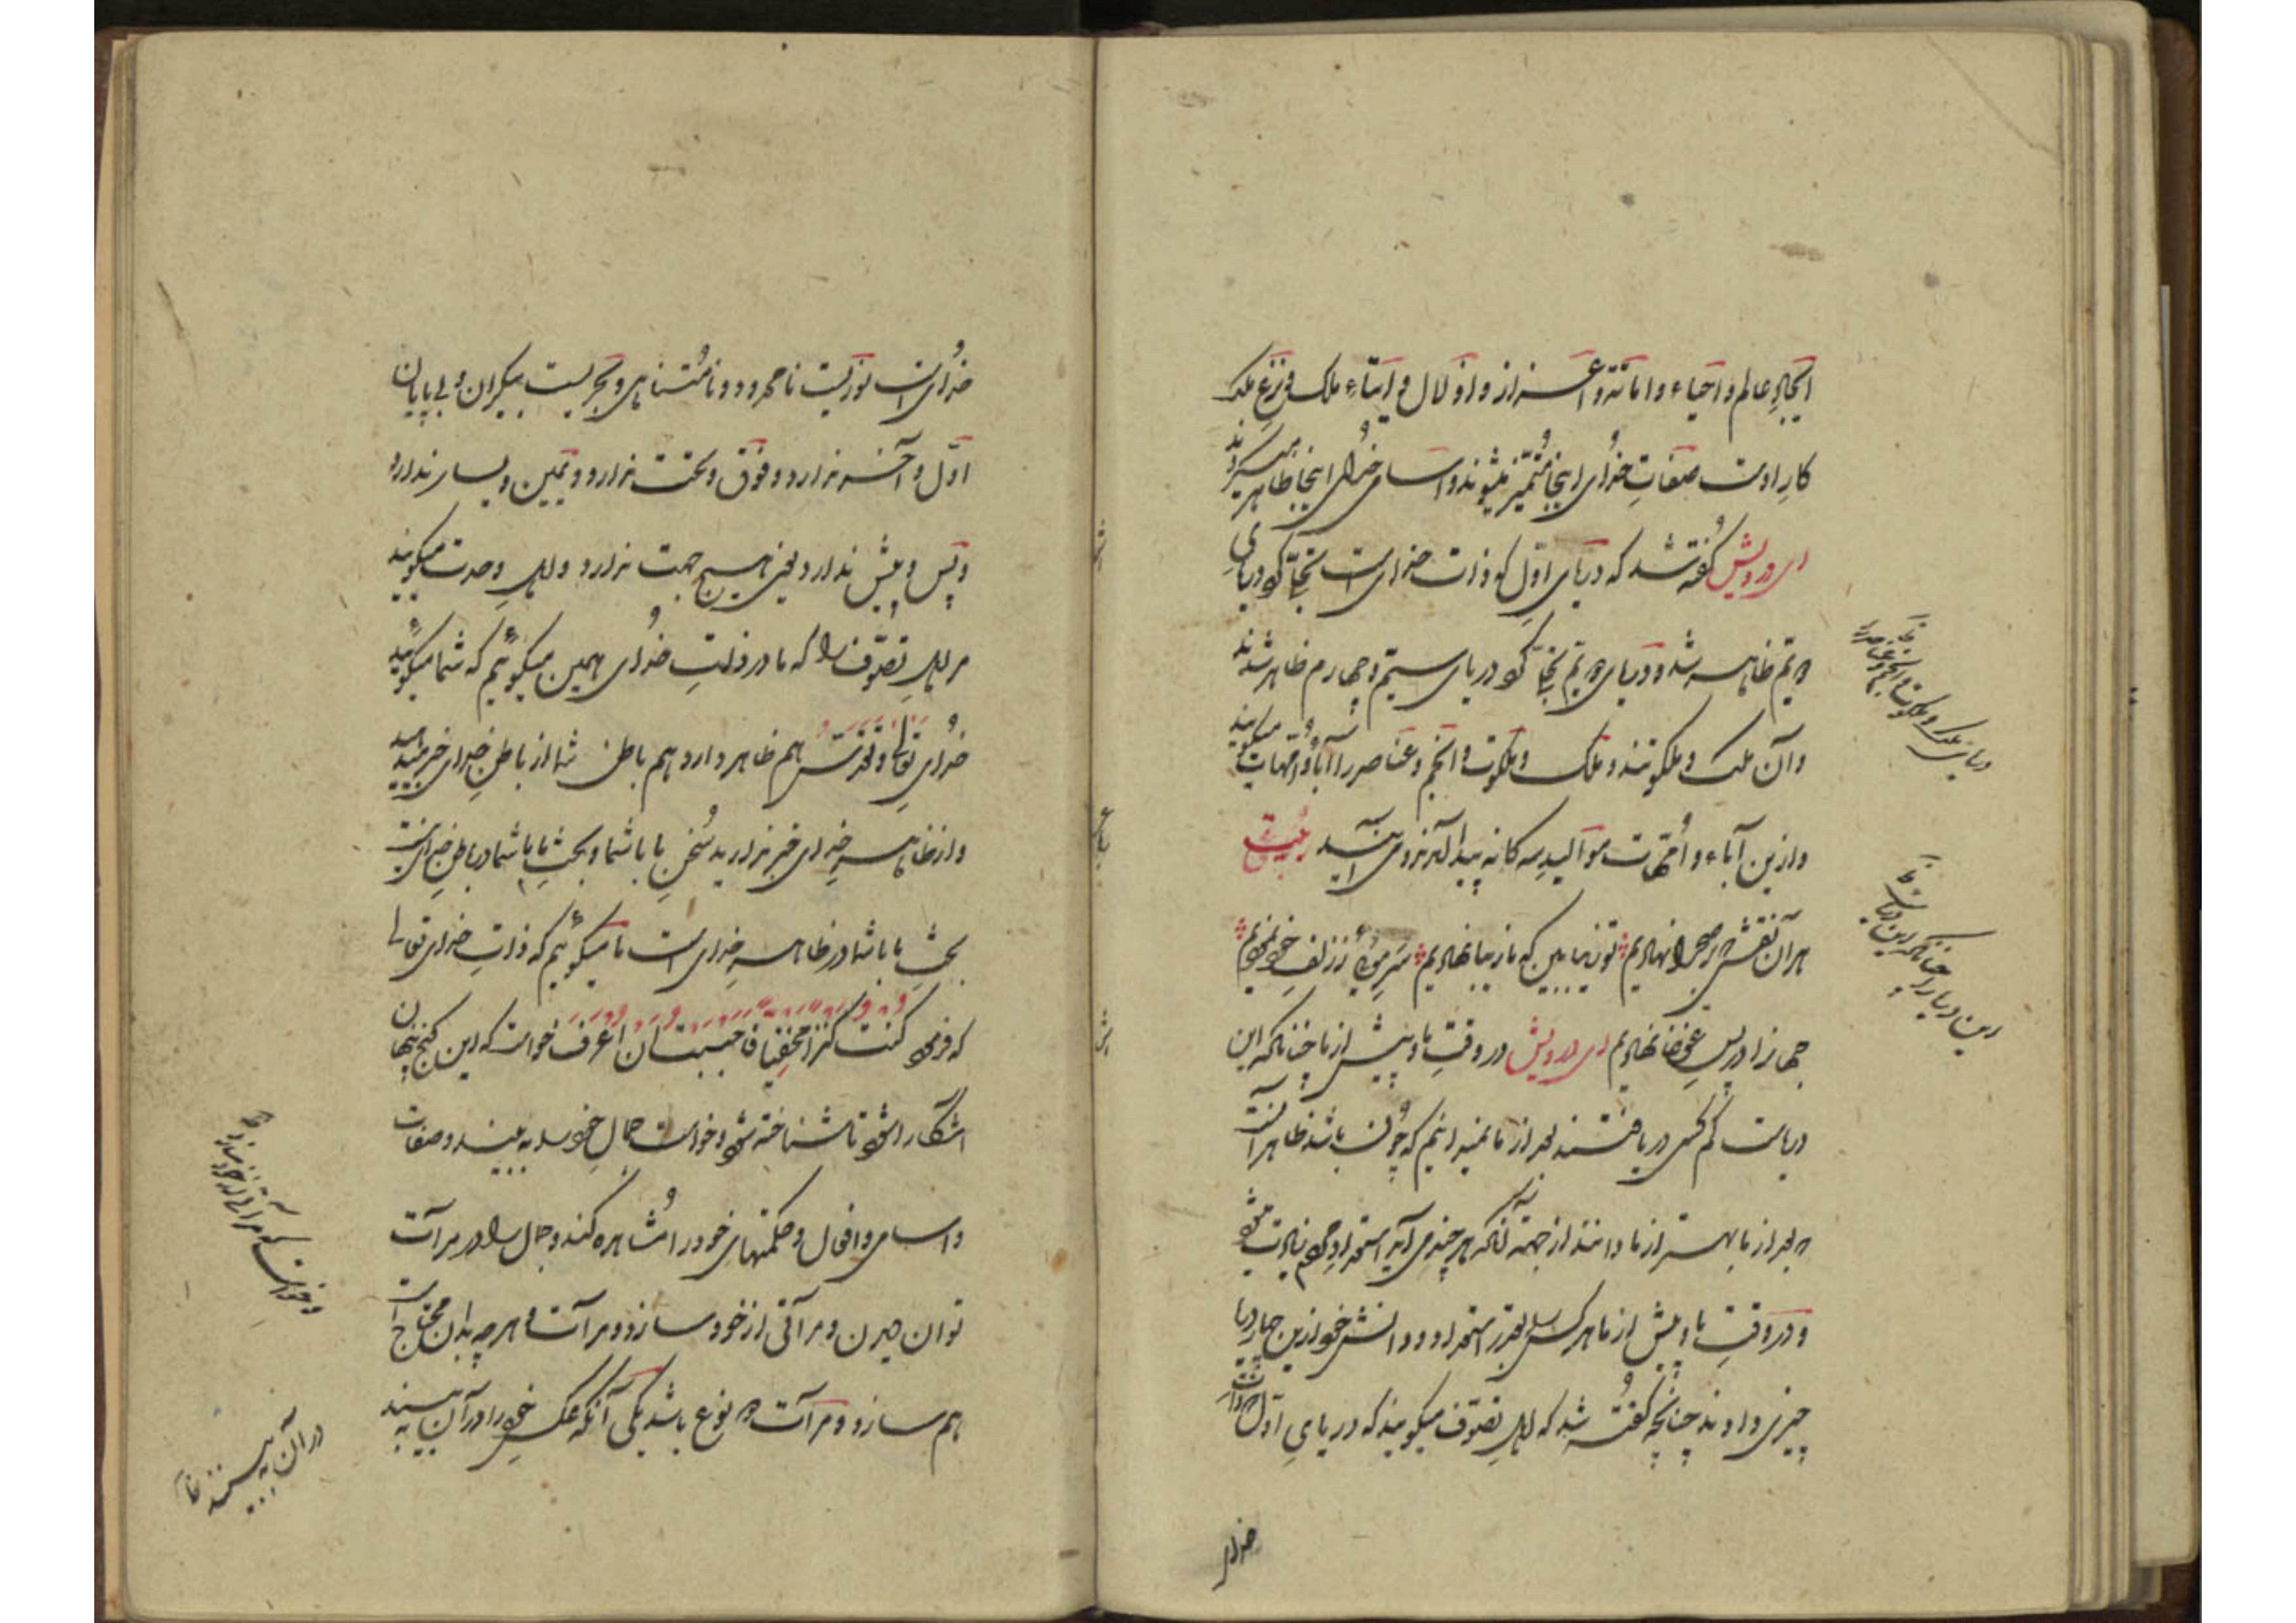 ایجادِ عالم و احیاء و اماتة و اعزاز و اذلال و ایتاءِ ملک و نزعِ ملک
کارِ اوست صفاتِ خدای اینجا متمیّز میشوند و اسامی خدای اینجا ظاهر میگردند
ای درویش گفته شد که دریای اوّل که ذات خدای است تجلّی کرد و دریای
دوّم ظاهر شد و دریای دوّم تجلّی کرد دریای سیّم و چهارم ظاهر شدند
و آن ملک و ملکوتند و ملک و ملکوت و انجم و عناصر را آباء و امّهات میگویند
و ازین آباء و اُمّهات موالیدِ سه کانه پیدا آمدند و می آیند بیت
هر آن نقشی که بر صحرا نهادیم تو زیبا بین که ما زیبا نهادیم سَرِ مویی ز زلف خود نمودیم
جهانرا در بسی غوغا نهادیم ای درویش در وقتِ ما و پیش از ما چنانکه این
دریاست کم کسی دریافتند بعد از ما نمیدانیم که چون باشد ظاهر آنست
که بعد از ما بهتر از ما دانند از جهة آنکه هر چند می آید استعداد مردم زیادت میشود
و در وقتِ ما و پیش از ما هر کس را بقدر استعداد و دانش خود ازین چهار دریا
چیزی دادند چنانچه گفته شد که اهلِ تصوّف میگویند که دریایِ اوّل که ذات
خدای
دریای ملک و ملکوت و انجم و عناصر
این دریا را چنانکه این دریاست
خدای است نوریست نامحدود و نامتناهی و بحریست بیکران و بی پایان
اوّل و آخر ندارد و فوق و تحت ندارد و یمین و یسار ندارد
و پس و پیش ندارد یعنی هیچ جهت ندارد و اهلِ وحدت میگویند
مر اهلِ تصوّف را که ما در ذاتِ خدای همین میگوئیم که شما میگوئید
خدای تعالی و تقدّس هم ظاهر دارد هم باطن شما از باطنِ خدای خبر میدهید
و از ظاهرِ خدای خبر ندارید سُخنِ ما با شما و بحثِ ما با شما در باطنِ خدای نیست
بحثِ ما با شما در ظاهرِ خدای است ما میگوئیم که ذاتِ خدای تعالی
که فرمود کنت کنزا مخفیا فاحببت ان اعرف خواست که این گنجِ پنهان
آشکارا شود تا شناخته شود و خواست جمالِ خود را به بیند و صفات
و اسامی و افعال و حکمتهای خود را مُشاهده کند و جمال را در مرآت
توان دیدن و مرآتی از خود سازد و مرآت و هر چه بدان محتاج است
هم سازد و مرآت دو نوع باشد یکی آنکه عکسِ خود را در آن به بینند
و خواست که مرآتی از خود سازد
در آن به بینند